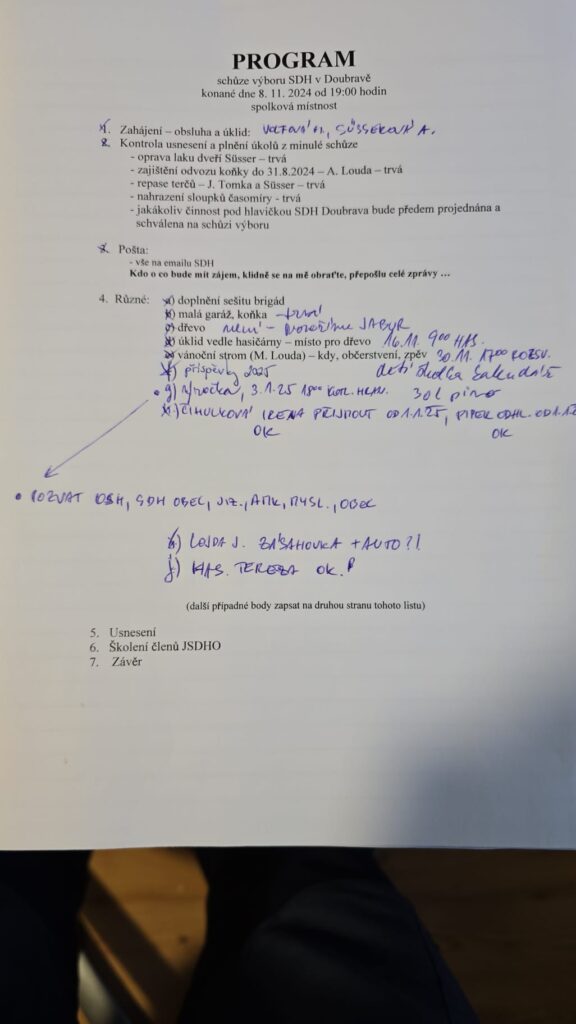 PROGRAM
schůze výboru SDH v Doubravě
konané dne 8. 11. 2024 od 19:00 hodin
spolková místnost
1. Zahájení – obsluha a úklid: SÜSSEROVÁ A.
2. Kontrola usnesení a plnění úkolů z minulé schůze
- oprava laku dveří Süsser – trvá
- zajištění odvozu koňky do 31.8.2024 – A. Louda – trvá
- repase terčů – J. Tomka a Süsser – trvá
- nahrazení sloupků časomíry - trvá
- jakákoliv činnost pod hlavičkou SDH Doubrava bude předem projednána a
schválena na schůzi výboru
3. Pošta:
- vše na emailu SDH
Kdo o co bude mít zájem, klidně se na mě obraťte, přepošlu celé zprávy …
4. Různé: a) doplnění sešitu brigád
b) malá garáž, koňka – trvá
c) dřevo není –
d) úklid vedle hasičárny – místo pro dřevo 16.11. 900 HAS.
e) vánoční strom (M. Louda) – kdy, občerstvení, zpěv 30.11. 1700 ROZSV.
f) příspěvky 2025 děti školka
g) výročka, 3.1.25 1800 30l pivo
h) IRENA PŘIJMOUT OD 1.1.25, PIPEK ODHL. OD 1.1.
OK OK
• POZVAT OSH, SDH OBEC, , , MYSL., OBEC
LOJDA J. ZÁSAHOVKA + AUTO?!
j) HAS. TEREZA OK.
(další případné body zapsat na druhou stranu tohoto listu)
5. Usnesení
6. Školení členů JSDHO
7. Závěr